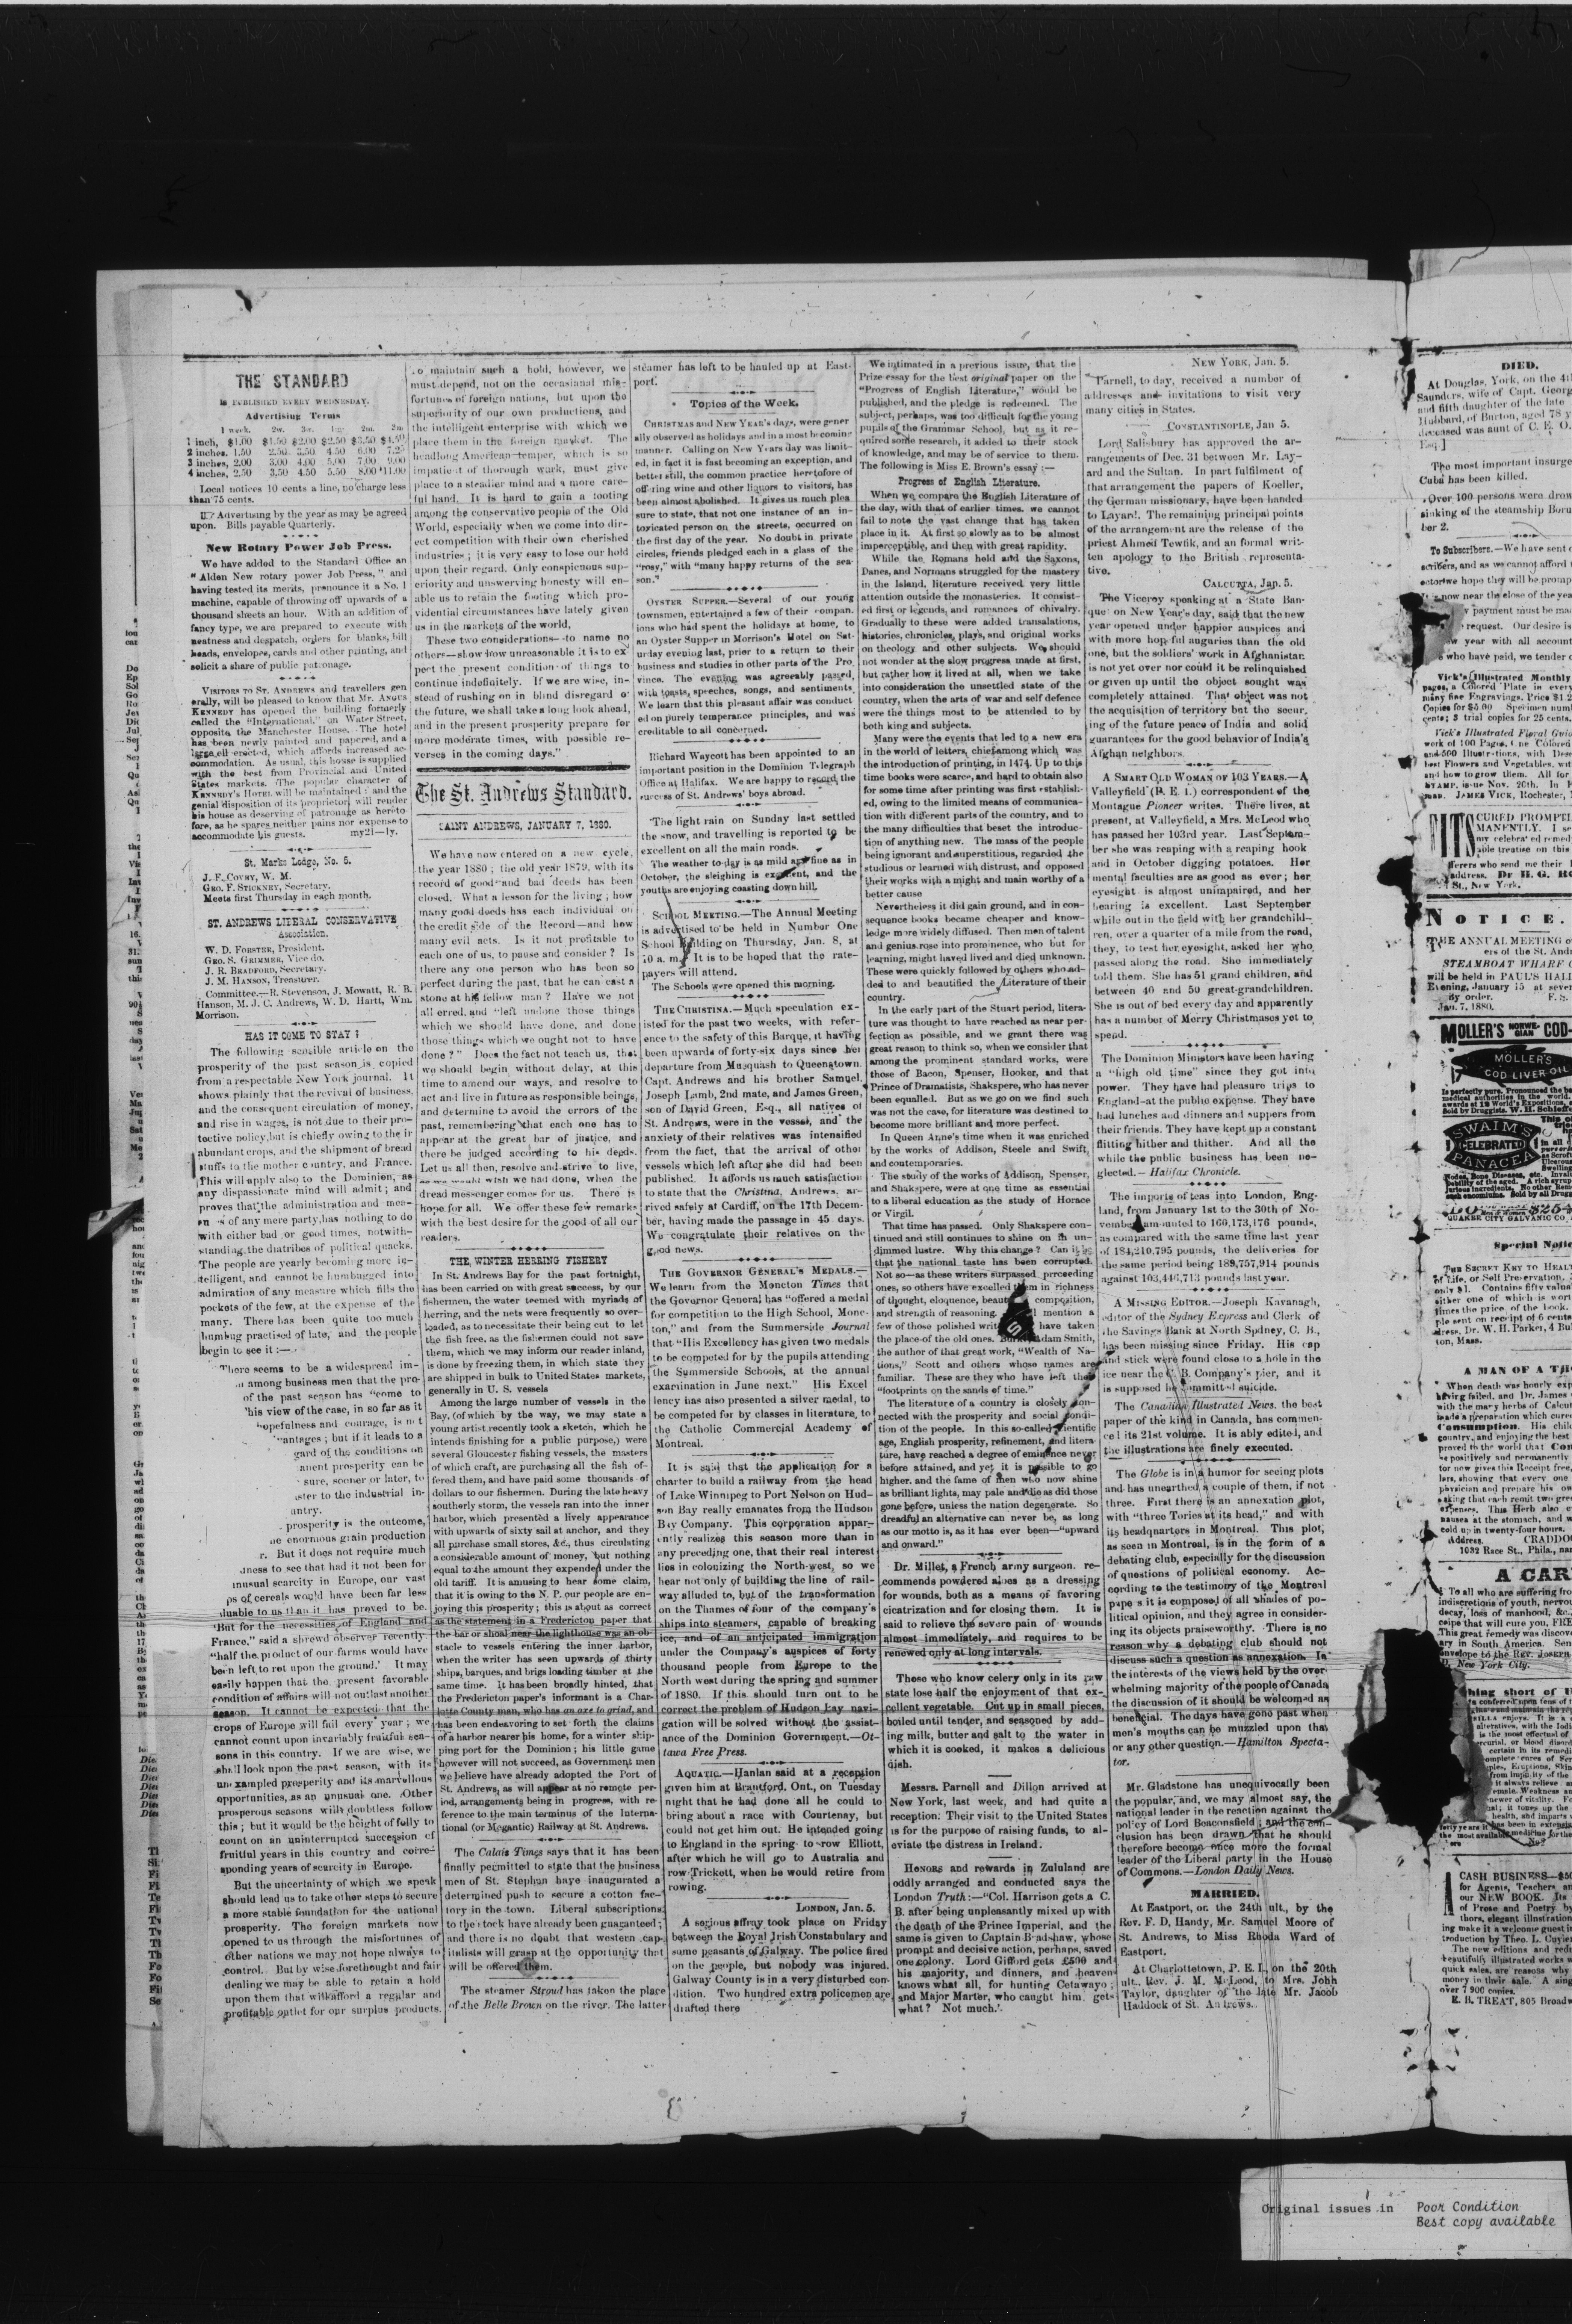 THE STANDARD
IS PUBLISHED EVERY WEDNESDAY.
Advertising Terms
1 week. 2w. 3w. 1m. 2m.
1 inch, $1.00 $1.50 $2.00 $2.50 $3.50
2 inches, 1.50 2.50 3.50 4.50 6.00 7.25
3 inches, 2.00 3.00 4.00 5.00 7.00 9.00
4 inches, 2.50 3.50 4.50 5.50 8.00 11.00
Local notices 10 cents a line, no charge less
than 75 cents.
Advertising by the year as may be agreed
upon. Bills payable Quarterly.
New Rotary Power Job Press.
We have added to the Standard Office an
"Alden New rotary power Job Press," and
having tested its merits, pronounce it a No. 1
machine, capable of throwing off upwards of a
thousand sheets an hour. With an addition of
fancy type, we are prepared to execute with
neatness and despatch, orders for blanks, bill
heads, envelopes, cards and other printing, and
solicit a share of public patronage.
VISITORS TO ST. ANDREWS and travellers gen
erally, will be pleased to know that Mr. ANGUS
KENNEDY has opened the building formerly
called the "International," on Water Street,
opposite the Manchester House. The hotel
has been newly painted and papered, and a
large ell erected, which affords increased ac-
commodation. As usual, this house is supplied
with the best from Provincial and United
States markets. The popular character of
KENNEDY'S HOTEL will be maintained; and the
genial disposition of its proprietor, will render
his house as deserving of patronage as hereto-
fore, as he spares neither pains nor expense to
accommodate his guests. my21—1y.
St. Marks Lodge, No. 5.
J. F. COVEY, W. M.
GEO. F. STICKNEY, Secretary.
Meets first Thursday in each month.
ST. ANDREWS LIBERAL CONSERVATIVE
Association.
W. D. FORSTER, President.
GEO. S. GRIMMER, Vice do.
J. R. BRADFORD, Secretary.
J. M. HANSON, Treasurer.
Committee.—R. Stevenson, J. Mowatt, R. B.
Hanson, M. J. C. Andrews, W. D. Hartt, Wm.
Morrison.
HAS IT COME TO STAY?
The following sensible article on the
prosperity of the past season is copied
from a respectable New York journal. It
shows plainly that the revival of business,
and the consequent circulation of money,
and rise in wages, is not due to their pro-
tective policy, but is chiefly owing to the ir
abundant crops, and the shipment of bread
stuffs to the mother country, and France.
This will apply also to the Dominion, as
any dispassionate mind will admit; and
proves that the administration and
of any mere party, has nothing to do
with either bad or good times, notwith-
standing the diatribes of political quacks.
The people are yearly becoming more in-
telligent, and cannot be humbugged into
admiration of any measure which fills the
pockets of the few, at the expense of the
many. There has been quite too much
humbug practised of late, and the people
begin to see it:—
There seems to be a widespread im-
among business men that the pro-
of the past season has "come to
his view of the case, in so far as it
hopefulness and courage, is not
vantages; but if it leads to a
gard of the conditions on
anent prosperity can be
sure, sooner or later, to
ster to the industrial in-
untry.
prosperity is the outcome,
enormous grain production
r. But it does not require much
ness to see that had it not been for
unusual scarcity in Europe, our vast
ps of cereals would have been far less
luable to us than it has proved to be.
"But for the necessities of England and
France," said a shrewd observer recently
"half the product of our farms would have
been left to rot upon the ground." It may
easily happen that the present favorable
condition of affairs will not outlast another
season. It cannot be expected that the
crops of Europe will fail every year; we
cannot count upon invariably fruitful sea-
sons in this country. If we are wise, we
shall look upon the past season, with its
unexampled prosperity and its marvellous
opportunities, as an unusual one. Other
prosperous seasons will doubtless follow
this; but it would be the height of folly to
count on an uninterrupted succession of
fruitful years in this country and corre-
sponding years of scarcity in Europe.
But the uncertainty of which we speak
should lead us to take other steps to secure
a more stable foundation for the national
prosperity. The foreign markets now
opened to us through the misfortunes of
other nations we may not hope always to
control. But by wise forethought and fair
dealing we may be able to retain a hold
upon them that will afford a regular and
profitable outlet for our surplus products.
To maintain such a hold, however, we
must depend, not on the occasional mis-
fortunes of foreign nations, but upon the
superiority of our own productions, and
the intelligent enterprise with which we
place them in the foreign market. The
headlong American temper, which is so
impatient of thorough work, must give
place to a steadier mind and a more care-
ful hand. It is hard to gain a footing
among the conservative people of the Old
World, especially when we come into dir-
ect competition with their own cherished
industries; it is very easy to lose our hold
upon their regard. Only conspicuous sup-
eriority and unswerving honesty will en-
able us to retain the footing which pro-
vidential circumstances have lately given
us in the markets of the world.
These two considerations—to name no
others—show how unreasonable it is to ex
pect the present condition of things to
continue indefinitely. If we are wise, in-
stead of rushing on in blind disregard o
the future, we shall take a long look ahead,
and in the present prosperity prepare for
more moderate times, with possible re-
verses in the coming days."
The St. Andrews Standard.
SAINT ANDREWS, JANUARY 7, 1880.
We have now entered on a new cycle,
the year 1880; the old year 1879, with its
record of good and bad deeds has been
closed. What a lesson for the living; how
many good deeds has each individual on
the credit side of the Record—and how
many evil acts. Is it not profitable to
each one of us, to pause and consider? Is
there any one person who has been so
perfect during the past, that he can cast a
stone at his fellow man? Have we not
all erred, and "left undone those things
which we should have done, and done
those things which we ought not to have
done?" Does the fact not teach us, that
we should begin without delay, at this
time to amend our ways, and resolve to
act and live in future as responsible beings,
and determine to avoid the errors of the
past, remembering that each one has to
appear at the great bar of justice, and
there be judged according to his deeds.
Let us all then, resolve and strive to live,
as we would wish we had done, when the
dread messenger comes for us. There is
hope for all. We offer these few remarks
with the best desire for the good of all our
readers.
THE WINTER HERRING FISHERY
In St. Andrews Bay for the past fortnight,
has been carried on with great success, by our
fishermen, the water teemed with myriads of
herring, and the nets were frequently so over-
loaded, as to necessitate their being cut to let
the fish free, as the fishermen could not save
them, which we may inform our reader inland,
is done by freezing them, in which state they
are shipped in bulk to United States markets,
generally in U. S. vessels
Among the large number of vessels in the
Bay, (of which by the way, we may state a
young artist recently took a sketch, which he
intends finishing for a public purpose,) were
several Gloucester fishing vessels, the masters
of which craft, are purchasing all the fish of-
fered them, and have paid some thousands of
dollars to our fishermen. During the late heavy
southerly storm, the vessels ran into the inner
harbor, which presented a lively appearance
with upwards of sixty sail at anchor, and they
all purchase small stores, &c., thus circulating
a considerable amount of money, but nothing
equal to the amount they expended under the
old tariff. It is amusing to hear some claim,
that it is owing to the N. P. our people are en-
joying this prosperity; this is about as correct
as the statement in a Fredericton paper that
the bar or shoal near the lighthouse was an ob-
stacle to vessels entering the inner harbor,
when the writer has seen upwards of thirty
ships, barques, and brigs loading timber at the
same time. It has been broadly hinted, that
the Fredericton paper's informant is a Char-
lotte County man, who has an axe to grind, and
has been endeavoring to set forth the claims
of a harbor nearer his home, for a winter ship-
ping port for the Dominion; his little game
however will not succeed, as Government men
we believe have already adopted the Port of
St. Andrews, as will appear at no remote per-
iod, arrangements being in progress, with re-
ference to the main terminus of the Interna-
tional (or Megantic) Railway at St. Andrews.
The Calais Times says that it has been
finally permitted to state that the business
men of St. Stephen have inaugurated a
determined push to secure a cotton fac-
tory in the town. Liberal subscriptions
to the stock have already been guaranteed;
and there is no doubt that western cap-
italists will grasp at the opportunity that
will be offered them.
The steamer Stroud has taken the place
of the Belle Brown on the river. The latter
steamer has left to be hauled up at East-
port.
Topics of the Week.
CHRISTMAS and NEW YEAR'S days, were gener
ally observed as holidays and in a most becoming
manner. Calling on New Years day was limit-
ed, in fact it is fast becoming an exception, and
better still, the common practice heretofore of
offring wine and other liquors to visitors, has
been almost abolished. It gives us much plea
sure to state, that not one instance of an in-
toxicated person on the streets, occurred on
the first day of the year. No doubt in private
circles, friends pledged each in a glass of the
"rosy," with "many happy returns of the sea-
son."
OYSTER SUPPER.—Several of our young
townsmen, entertained a few of their compan.
ions who had spent the holidays at home, to
an Oyster Supper in Morrison's Hotel on Sat-
urday evening last, prior to a return to their
business and studies in other parts of the Pro
vince. The evening was agreeably passed,
with toasts, speeches, songs, and sentiments.
We learn that this pleasant affair was conduct
ed on purely temperance principles, and was
creditable to all concerned.
Richard Waycott has been appointed to an
important position in the Dominion Telegraph
Office at Halifax. We are happy to record the
success of St. Andrews' boys abroad.
The light rain on Sunday last settled
the snow, and travelling is reported to be
excellent on all the main roads.
The weather to-day is as mild and fine as in
October, the sleighing is excellent, and the
youths are enjoying coasting down hill.
SCHOOL MEETING.—The Annual Meeting
is advertised to be held in Number One
School Building on Thursday, Jan. 8, at
10 a. m. It is to be hoped that the rate-
payers will attend.
The Schools were opened this morning.
THE CHRISTINA.—Much speculation ex-
isted for the past two weeks, with refer-
ence to the safety of this Barque, it having
been upwards of forty-six days since her
departure from Musquash to Queenstown.
Capt. Andrews and his brother Samuel,
Joseph Lamb, 2nd mate, and James Green,
son of David Green, Esq., all natives of
St. Andrews, were in the vessel, and the
anxiety of their relatives was intensified
from the fact, that the arrival of other
vessels which left after she did had been
published. It affords us much satisfaction
to state that the Christina, Andrews, ar-
rived safely at Cardiff, on the 17th Decem-
ber, having made the passage in 45 days.
We congratulate their relatives on the
good news.
THE GOVERNOR GENERAL'S MEDALS.—
We learn from the Moncton Times that
the Governor General has "offered a medal
for competition to the High School, Monc-
ton," and from the Summerside Journal
that "His Excellency has given two medals
to be competed for by the pupils attending
the Summerside Schools, at the annual
examination in June next." His Excel
lency has also presented a silver medal, to
be competed for by classes in literature, to
the Catholic Commercial Academy of
Montreal.
It is said that the application for a
charter to build a railway from the head
of Lake Winnipeg to Port Nelson on Hud-
son Bay really emanates from the Hudson
Bay Company. This corporation appar-
ently realizes this season more than in
any preceding one, that their real interest
lies in colonizing the North-west, so we
hear not only of building the line of rail-
way alluded to, but of the transformation
on the Thames of four of the company's
ships into steamers, capable of breaking
ice, and of an anticipated immigration
under the Company's auspices of forty
thousand people from Europe to the
North west during the spring and summer
of 1880. If this should turn out to be
correct the problem of Hudson Bay navi-
gation will be solved without the assist-
ance of the Dominion Government.—Ot-
tawa Free Press.
AQUATIC.—Hanlan said at a reception
given him at Brantford, Ont., on Tuesday
night that he had done all he could to
bring about a race with Courtenay, but
could not get him out. He intended going
to England in the spring to row Elliott,
after which he will go to Australia and
row Trickett, when he would retire from
rowing.
LONDON, Jan. 5.
A serious affray took place on Friday
between the Royal Irish Constabulary and
some peasants of Galway. The police fired
on the people, but nobody was injured.
Galway County is in a very disturbed con-
dition. Two hundred extra policemen are
drafted there
We intimated in a previous issue, that the
Prize essay for the best original paper on the
"Progress of English Literature," would be
published, and the pledge is redeemed. The
subject, perhaps, was too difficult for the young
pupils of the Grammar School, but as it re-
quired some research, it added to their stock
of knowledge, and may be of service to them.
The following is Miss E. Brown's essay:—
Progress of English Literature.
When we compare the English Literature of
the day, with that of earlier times, we cannot
fail to note the vast change that has taken
place in it. At first so slowly as to be almost
imperceptible, and then with great rapidity.
While the Romans held and the Saxons,
Danes, and Normans struggled for the mastery
in the Island, literature received very little
attention outside the monasteries. It consist-
ed first or legends, and romances of chivalry.
Gradually to these were added transalations,
histories, chronicles, plays, and original works
on theology and other subjects. We should
not wonder at the slow progress made at first,
but rather how it lived at all, when we take
into consideration the unsettled state of the
country, when the arts of war and self defence
were the things most to be attended to by
both king and subjects.
Many were the events that led to a new era
in the world of letters, chief among which was
the introduction of printing, in 1474. Up to this
time books were scarce, and hard to obtain also
for some time after printing was first establish-
ed, owing to the limited means of communica-
tion with different parts of the country, and to
the many difficulties that beset the introduc-
tion of anything new. The mass of the people
being ignorant and superstitious, regarded the
studious or learned with distrust, and opposed
their works with a might and main worthy of a
better cause
Nevertheless it did gain ground, and in con-
sequence books became cheaper and know-
ledge more widely diffused. Then men of talent
and genius rose into prominence, who but for
learning, might haved lived and died unknown.
These were quickly followed by others who ad-
ded to and beautified the Literature of their
country.
In the early part of the Stuart period, litera-
ture was thought to have reached as near per-
fection as possible, and we grant there was
great reason to think so, when we consider that
among the prominent standard works, were
those of Bacon, Spenser, Hooker, and that
Prince of Dramatists, Shakspere, who has never
been equalled. But as we go on we find such
was not the case, for literature was destined to
become more brilliant and more perfect.
In Queen Anne's time when it was enriched
by the works of Addison, Steele and Swift,
and contemporaries.
The study of the works of Addison, Spenser,
and Shakspere, were at one time as essential
to a liberal education as the study of Horace
or Virgil.
That time has passed. Only Shakspere con-
tinued and still continues to shine on in un-
dimmed lustre. Why this change? Can it be
that the national taste has been corrupted.
Not so—as these writers surpassed preceeding
ones, so others have excelled them in richness
of thought, eloquence, beauty composition,
and strength of reasoning. mention a
few of those polished have taken
the place of the old ones. Adam Smith,
the author of that great work, "Wealth of Na-
tions," Scott and others whose names are
familiar. These are they who have left their
"footprints on the sands of time."
The literature of a country is closely con-
nected with the prosperity and social condi-
tion of the people. In this so-called scientific
age, English prosperity, refinement, and litera-
ture, have reached a degree of eminence never
before attained, and yet it is possible to go
higher, and the fame of men who now shine
as brilliant lights, may pale and die as did those
gone before, unless the nation degenerate. So
dreadful an alternative can never be, as long
as our motto is, as it has ever been—"upward
and onward."
Dr. Millet, a French army surgeon. re-
commends powdered aloes as a dressing
for wounds, both as a means of favoring
cicatrization and for closing them. It is
said to relieve the severe pain of wounds
almost immediately, and requires to be
renewed only at long intervals.
Those who know celery only in its raw
state lose half the enjoyment of that ex-
cellent vegetable. Cut up in small pieces,
boiled until tender, and seasoned by add-
ing milk, butter and salt to the water in
which it is cooked, it makes a delicious
dish.
Messrs. Parnell and Dillon arrived at
New York, last week, and had quite a
reception: Their visit to the United States
is for the purpose of raising funds, to al-
eviate the distress in Ireland.
HONORS and rewards in Zululand are
oddly arranged and conducted says the
London Truth:—"Col. Harrison gets a C.
B. after being unpleasantly mixed up with
the death of the Prince Imperial, and the
same is given to Captain Bradshaw, whose
prompt and decisive action, perhaps, saved
one colony. Lord Gifford gets £500 and
his majority, and dinners, and heaven
knows what all, for hunting Cetewayo;
and Major Marter, who caught him gets
what? Not much.'
NEW YORK, Jan. 5.
Parnell, to day, received a number of
addresses and invitations to visit very
many cities in States.
CONSTANTINOPLE, Jan 5.
Lord Salisbury has approved the ar-
rangements of Dec. 31 between Mr. Lay-
ard and the Sultan. In part fulfilment of
that arrangement the papers of Koeller,
the German missionary, have been handed
to Layard. The remaining principal points
of the arrangement are the release of the
priest Ahmed Tewfik, and an formal writ-
ten apology to the British representa-
tive.
CALCUTTA, Jan. 5.
The Viceroy speaking at a State Ban-
quet on New Year's day, said that the new
year opened under happier auspices and
with more hopeful auguries than the old
one, but the soldiers' work in Afghanistan
is not yet over nor could it be relinquished
or given up until the object sought was
completely attained. That object was not
the acquisition of territory but the secur-
ing of the future peace of India and solid
guarantees for the good behavior of India's
Afghan neighbors.
A SMART OLD WOMAN OF 103 YEARS.—A
Valleyfield (P. E. I.) correspondent of the
Montague Pioneer writes. There lives, at
present, at Valleyfield, a Mrs. McLeod who
has passed her 103rd year. Last Septem-
ber she was reaping with a reaping hook
and in October digging potatoes. Her
mental faculties are as good as ever; her
eyesight is almost unimpaired, and her
hearing is excellent. Last September
while out in the field with her grandchild-
ren, over a quarter of a mile from the road,
they, to test her eyesight, asked her who
passed along the road. She immediately
told them. She has 51 grand children, and
between 40 and 50 great-grandchildren.
She is out of bed every day and apparently
has a number of Merry Christmases yet to
spend.
The Dominion Ministers have been having
a "high old time" since they got into
power. They have had pleasure trips to
England—at the public expense. They have
had lunches and dinners and suppers from
their friends. They have kept up a constant
flitting hither and thither. And all the
while the public business has been ne-
glected.—Halifax Chronicle.
The imports of teas into London, Eng-
land, from January 1st to the 30th of No-
vember amounted to 160,173,176 pounds,
as compared with the same time last year
of 184,210,795 pounds, the deliveries for
the same period being 189,757,914 pounds
against 103,446,713 pounds last year.
A MISSING EDITOR.—Joseph Kavanagh,
editor of the Sydney Express and Clerk of
the Savings Bank at North Spdney, C. B.,
has been missing since Friday. His cap
and stick were found close to a hole in the
ice near the C. B. Company's pier, and it
is supposed he committed suicide.
The Canadian Illustrated News, the best
paper of the kind in Canada, has commen-
ced its 21st volume. It is ably edited, and
the illustrations are finely executed.
The Globe is in a humor for seeing plots
and has unearthed a couple of them, if not
three. First there is an annexation plot,
with "three Tories at its head," and with
its headquarters in Montreal. This plot,
as seen in Montreal, is in the form of a
debating club, especially for the discussion
of questions of political economy. Ac-
cording to the testimony of the Montreal
papers it is composed of all shades of po-
litical opinion, and they agree in consider-
ing its objects praiseworthy. There is no
reason why a debating club should not
discuss such a question as annexation. In
the interests of the views held by the over-
whelming majority of the people of Canada
the discussion of it should be welcomed as
beneficial. The days have gone past when
men's mouths can be muzzled upon that
or any other question.—Hamilton Specta-
tor.
Mr. Gladstone has unequivocally been
the popular, and, we may almost say, the
national leader in the reaction against the
policy of Lord Beaconsfield; and the con-
clusion has been drawn that he should
therefore become once more the formal
leader of the Liberal party in the House
of Commons.—London Daily News.
MARRIED.
At Eastport, on the 24th ult., by the
Rev. F. D. Handy, Mr. Samuel Moore of
St. Andrews, to Miss Rhoda Ward of
Eastport.
At Charlottetown, P. E. I., on the 20th
ult., Rev. J. M. McLeod, to Mrs. John
Taylor, daughter of the late Mr. Jacob
Haddock of St. Andrews.
DIED.
At Douglas, York, on the
Saunders, wife of Capt.
and fifth daughter of the late
Hubbard, of Burton, aged 78
deceased was aunt of C. E. O.
Esq.]
The most important
Cuba has been killed.
Over 100 persons were
sinking of the steamship
ber 2.
To Subscribers.—We have sent
scribers, and as we cannot afford
we hope they will be
now near the close of the
payment must be
request. Our desire is
year with all
who have paid, we tender
Vick's Illustrated Monthly
pages, a Colored Plate in every
many fine Engravings. Price
Copies for $5.00 Specimen
cents; 3 trial copies for 25 cents.
Vick's Illustrated Floral
work of 100 Pages, One Colored
and 500 Illustrations, with
best Flowers and Vegetables,
and how to grow them. All for
JAMES VICK, Rochester,
FITS
CURED
NOTICE.
THE ANNUAL MEETING
ers of the St.
STEAMBOAT WHARF
will be held in PAUL'S
Evening, January 15 at
By order.
Jan. 7, 1880.
MOLLER'S NORWE-GIAN COD-
MÖLLER'S
COD-LIVER OIL
SWAIM'S
CELEBRATED
PANACEA
QUAKER CITY GALVANIC CO
Special
THE SECRET KEY TO
of Life, or Self Preservation.
only $1. Contains fifty
either one of which is
times the price of the book.
ple sent on receipt of 6 cents
dress, Dr. W. H. Parker, 4
ton, Mass.
A MAN OF A
When death was hourly
having failed, and Dr. James
with the many herbs of
made a preparation which
Consumption. His
country, and enjoying the best
proved to the world that
be positively and permanently
tor now gives this Receipt free,
1032 Race St., Phila.,
A
To all who are suffering
indiscretions of youth,
decay, loss of manhood, &c.,
ceipe that will cure you,
This great remedy was
ary in South America.
envelope to the REV. JOSEPH
D, New York City.
CASH BUSINESS—
for Agents, Teachers
our NEW BOOK. Its
of Prose and Poetry by
thors, elegant
ing make it a welcome guest
troduction by Theo. L.
The new editions and
beautifully illustrated works
quick sales, are reasons why
money in their sale. A
over 7 900 copies.
E. B. TREAT, 805
Original issues in Poor Condition
Best copy available